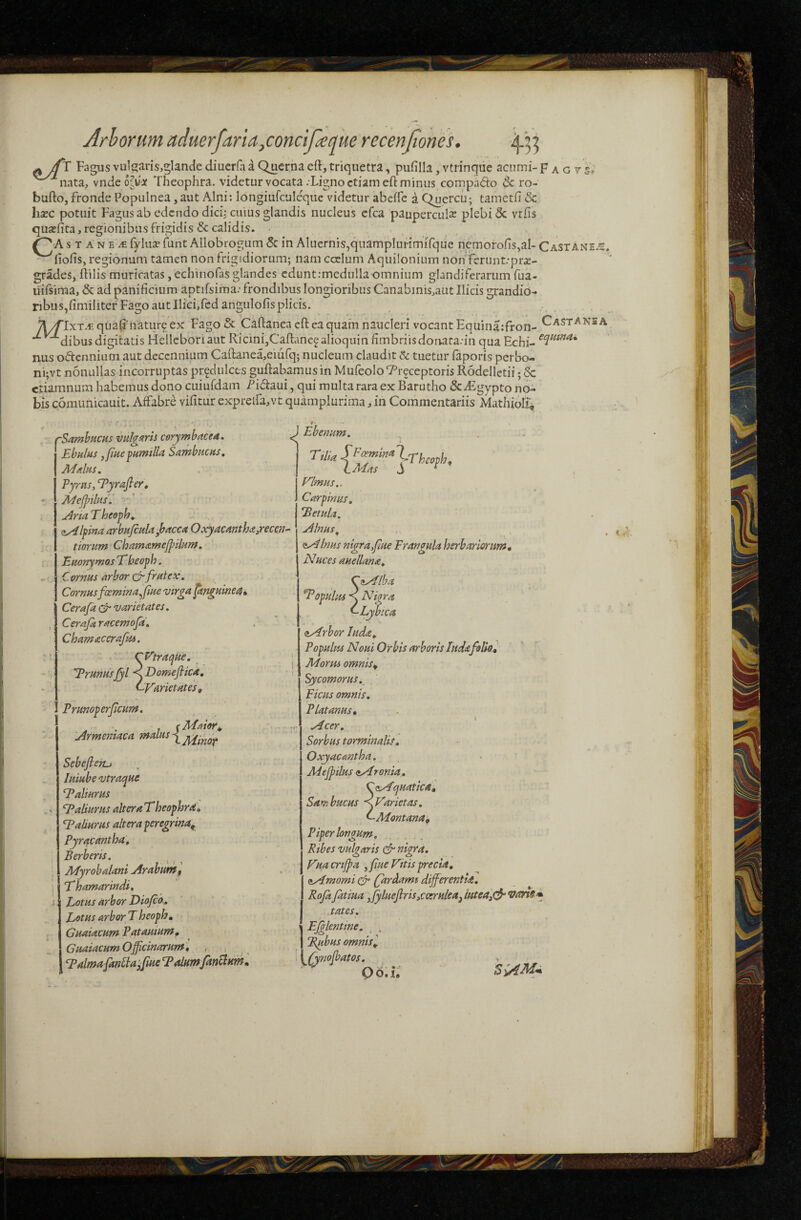 Arborum aduersaria, concisæque recensiones. 433
AT Fagus vulgaris, glande diuersa à Querna est, triquetra, pusilla, vtrinque acumi- FAGVS.
nata, vnde ὀξύα Theophra. videtur vocata: Ligno etiam est minus compacto & ro-
busto, fronde Populnea, aut Alni: longiusculéque videtur abesse à Quercu; tametsi &
hæc potuit Fagus ab edendo dici; cuius glandis nucleus esca pauperculæ plebi & vtsis
quæsita, regionibus frigidis & calidis.
CASTANEÆ syluæ sunt Allobrogum & in Aluernis, quamplurimísque nemorosis, al- CASTANEÆ.
siosis, regionum tamen non frigidiorum; nam cœlum Aquilonium non ferunt: præ-
grādes, stilis muricatas, echinosas glandes edunt: medulla omnium glandiferarum sua-
uissima, & ad panificium aptissima: frondibus longioribus Canabinis, aut Ilicis grandio-
ribus, similiter Fago aut Ilici, sed angulosis plicis.
MIXTÆ quasi naturę ex Fago & Castanea est ea quam naucleri vocant Equinā: fron- CASTANEA
dibus digitatis Hellebori aut Ricini, Castaneę alioquin fimbriis donata: in qua Echi- equina.
nus octennium aut decennium Castaneā, eiúsq; nucleum claudit & tuetur saporis perbo-
ni; vt nōnullas incorruptas prędulces gustabamus in Museolo Pręceptoris Rōdelletii; &
etiamnum habemus dono cuiusdam Pictaui, qui multa rara ex Barutho & Ægypto no-
bis cōmunicauit. Affabrè visitur expressa, vt quamplurima, in Commentariis Mathioli.
Sambucus vulgaris corymbacea.
Ebulus, siue pumilla Sambucus.
Malus.
Pyrus, Pyraster.
Mespilus.
Aria Theoph.
Alpina arbuscula, bacca Oxyacanthæ, recen-
tiorum Chamæmespilum.
Euonymos Theoph.
Cornus arbor & frutex.
Cornus fœmina, siue virga sanguinea.
Cerasa & varietates.
Cerasa racemosa.
Chamæcerasus.
Prunus syl { Vtraque. Domestica. Varietates.
Prunopersicum.
Armeniaca malus { Maior. Minor
Sebesten
Iuiube vtraque
Paliurus
Paliurus altera Theophra.
Paliurus altera peregrina.
Pyracantha.
Berberis.
Myrobalani Arabum.
Thamarindi.
Lotus arbor Diosco.
Lotus arbor Theoph.
Guaiacum Patauium.
Guaiacum Officinarum.
Palma sancta, siue Palum sanctum.
Ebenum.
Tilia { Fœmina Mas } Theoph.
Vlmus.
Carpinus.
Betula.
Alnus.
Alnus nigra, siue Frangula herbariorum.
Nuces auellanæ.
Populus { Alba Nigra Lybica
Arbor Iudæ.
Populus Noui Orbis arboris Iudæ folio.
Morus omnis.
Sycomorus.
Ficus omnis.
Platanus.
Acer.
Sorbus torminalis.
Oxyacantha.
Mespilus Aronia.
Sambucus { Aquatica. Varietas. Montana.
Piper longum.
Ribes vulgaris & nigra.
Vua crispa, siue Vitis precia.
Amomi & Cardams differentiæ.
Rosa satiua, syluestris, cœrulea, lutea, & varie-
tates.
Esglentine.
Rubus omnis.
Cynosbatos.
Oo.i. SAM-